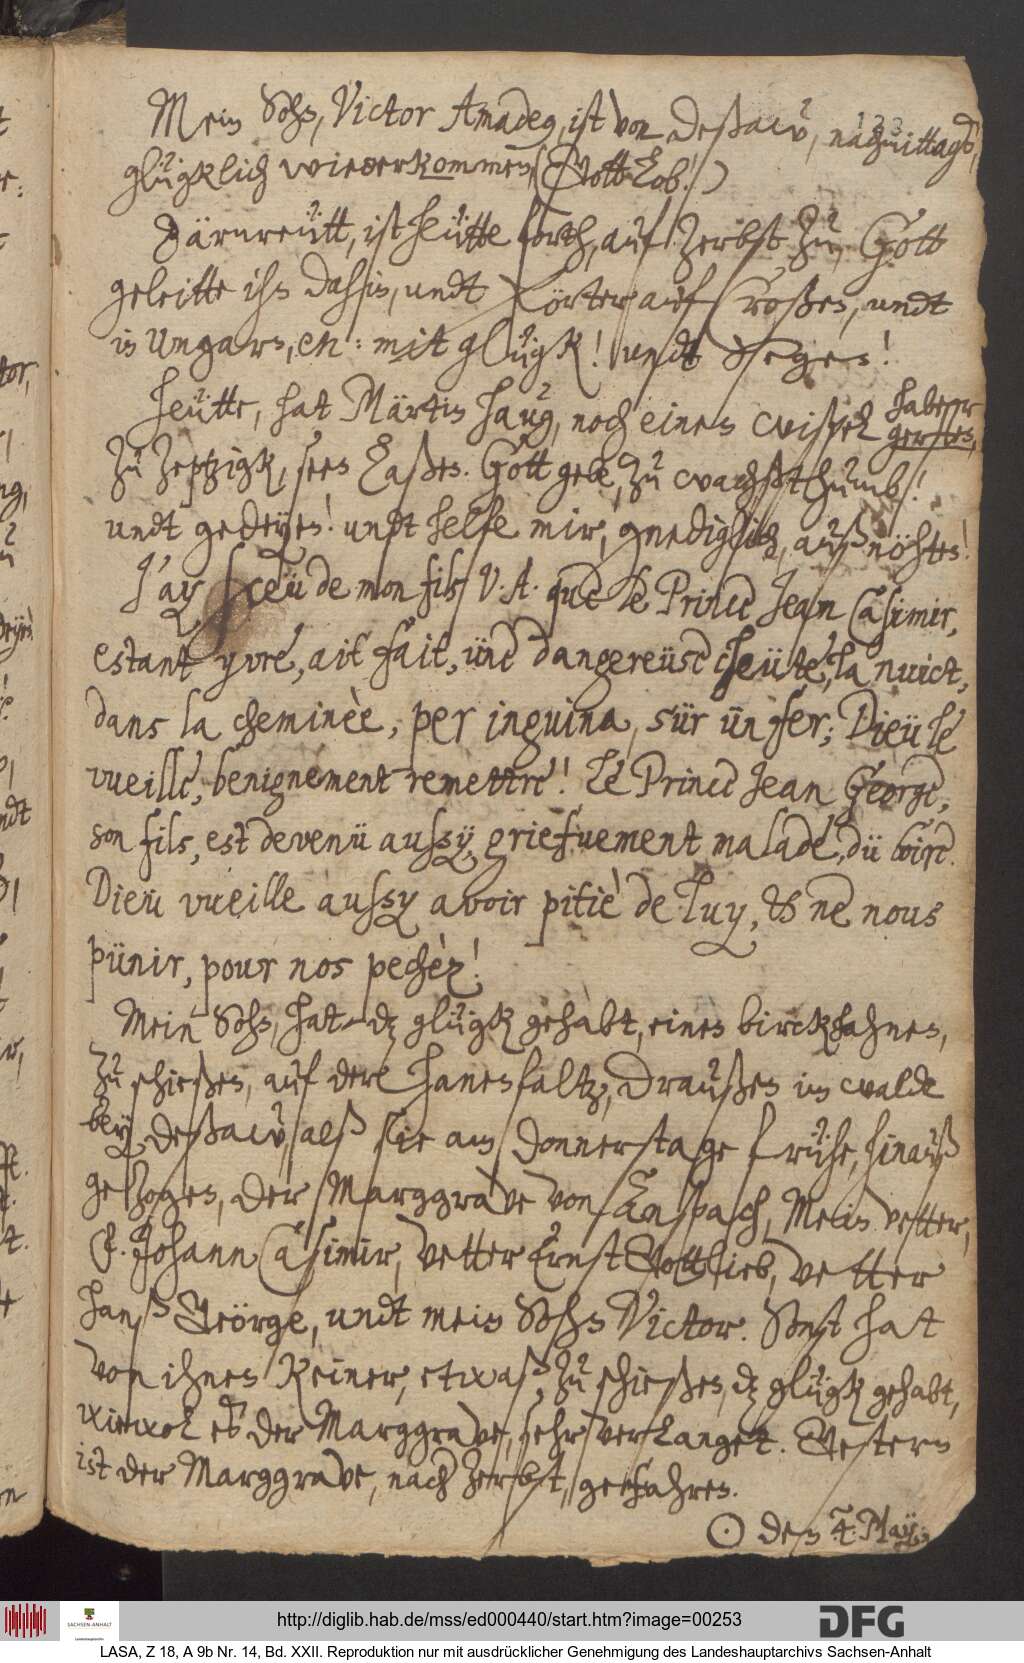 Mein Sohn, Victor Amadeq, ist von Deßaw, nachmittagß,
123
glügklich wiederkommen, (Gott Lob!)
Därnreütt, ist heütte forth, auf Zerbst zu, Gott
geleitte ihn dahin, undt Körter auf Croßen, undt
in Ungarn, etc: mit glügk! undt Segen!
Heütte, hat Märtin Haug, noch einen wispel haber
gersten,
zu Zeptzigk, seen laßen. Gott gebe, zu wachßthumb!
undt gedeyen! undt helfe mir, gnediglich, auß nöhten!
J'ay sceü de mon fils V. A. que le Prince Jean Casimir,
estant yvre, ait fait, üne dangereüse cheüte, la nuict,
dans la cheminèe, per inguina, sür ün fer; Dieü le
vueille, benignement remettre! Le Prince Jean George,
son fils, est devenü aussy, griefvement malade, dü boire.
Dieü vueille aussy avoir pitiè de luy, & ne nous
pünir, pour nos pechèz!
Mein Sohn, hat dz glügk gehabt, einen birckhahnen,
zu schießen, auf der hanenfaltz, draußen im walde
bey Deßaw, alß sie am Donnerstage frühe, hinauß
gezogen, der Marggrave von Anspach, Mein vetter,
F. Johann Casimir, vetter Ernst Gottlieb, vetter
Hanß Geörge, undt mein Sohn Victor. Sonst hat
von ihnen keiner, etwaß, zu schießen, dz glügk gehabt,
wiewol eß der Marggrave, sehr verlanget. Gestern
ist der Marggrave, nach Zerbst, gefahren.
☉ den 4. May:
http://diglib.hab.de/mss/ed000440/start.htm?image=00253
SACHSEN-ANHALT
DFG
LASA, Z 18, A 9b Nr. 14, Bd. XXII. Reproduktion nur mit ausdrücklicher Genehmigung des Landeshauptarchivs Sachsen-Anhalt